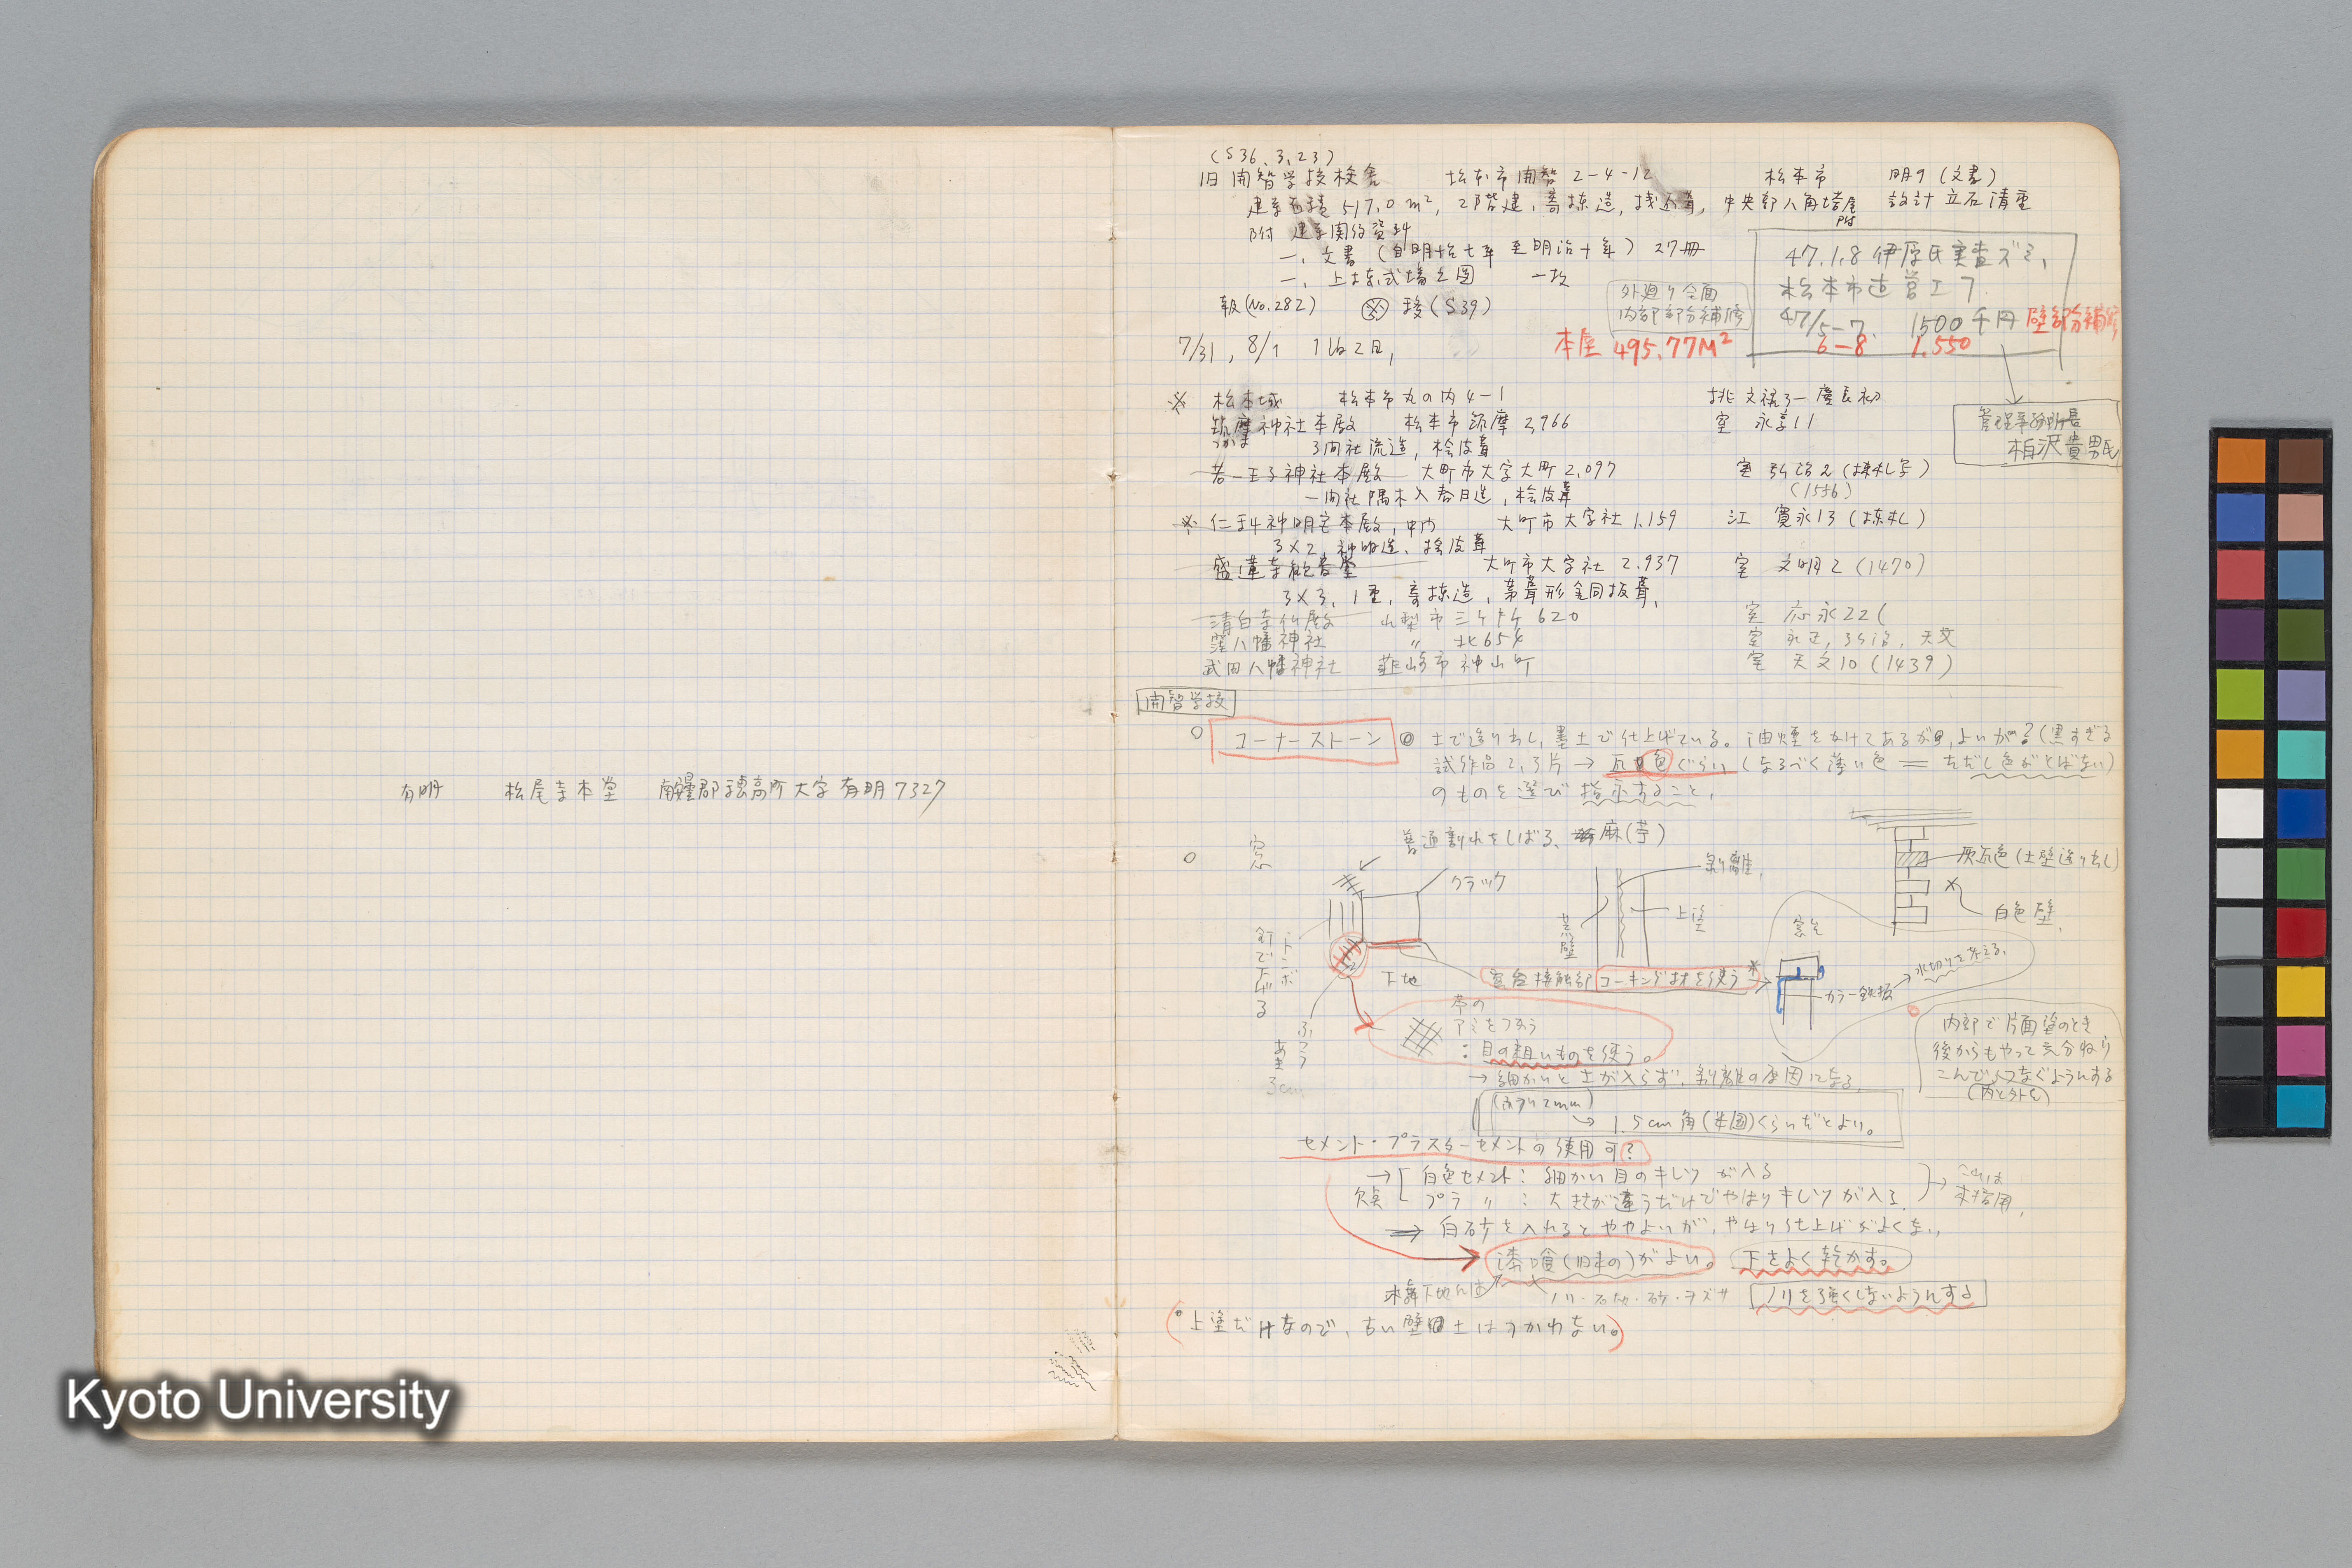 有明 松尾寺本堂 南安曇郡穂高町大字有明7327
(S36.3.23)
旧開智学校校舎 松本市開智2-4-12 松本市 明9(文書)
建築面積517.0m², 2階建, 寄棟造, 桟瓦葺, 中央部八角塔屋附 設計 立石清重
附 建築関係資料
一、文書(自明治七年 至明治十年) 27冊
一、上棟式場之図 一枚
報(No.282) 移(S39)
外廻り全面
内部部分補修
47.1.8 伊原氏実査ズミ,
松本市直営工フ.
47/5-7. 1500千円 壁部分補修
6-8 1.550
7/31, 8/1 1泊2日,
本屋 495.77M²
管理事務所長
柏沢貴男氏
※ 松本城 松本市丸の内4-1 桃 文禄3-慶長初
筑摩神社本殿 松本市筑摩2,966 室 永享11
つかま
3間社流造, 桧皮葺
若一王子神社本殿 大町市大字大町2,097 室 弘治2(棟札写)
(1556)
一間社隅木入春日造, 桧皮葺
※ 仁科神明宮本殿, 中門 大町市大字社1,159 江 寛永13(棟札)
3×2, 神明造, 桧皮葺
盛蓮寺観音堂 大町市大字社2.937 室 文明2(1470)
3×3, 1重, 寄棟造, 茅葺形銅板葺,
清白寺仏殿 山梨市三ヶ所620 室 応永22(
窪八幡神社 〃 北654 室 永正, 弘治, 天文
武田八幡神社 韮崎市神山町 室 天文10(1439)
開智学校
○ コーナーストーン ◎ 土で塗り出し, 墨土で仕上げている。油煙をかけてあるが, よいが?(黒すぎる
試作品2,3片→瓦色ぐらい(なるべく薄い色=ただし色がとばない)
のものを選び指示すること,
○ 窓 普通割れをしばる, 麻(苧)
クラック
剥離,
荒壁
上塗
灰瓦色(土壁塗り出し)
白色壁,
釘で下げる
トンボ
下地
ふつう
あき
3cm
窓台接触部 コーキング材を使う ※
窓台
カラー鉄板
水切りを考える,
苧の
アミをつかう
:目の粗いものを使う。
→細かいと土が入らず, 剥離の原因になる,
(ふつう2mm)
→1.5cm角(米国)くらいだとよい。
内部で片面塗のとき
後からもやって充分ねり
こんでつなぐようにする
(内と外を)
セメント・プラスターセメントの使用可?
→ 欠点 白色セメント:細かい目のキレツが入る
プラ 〃 :大きさが違うだけでやはりキレツが入る,
→これは
不採用,
⇒ 白砂を入れるとややよいが, やはり仕上げがよくない,
漆喰(旧来の)がよい。 下をよく乾かす。
木舞下地には
ノリ・石灰・砂・ヲズサ ノリを強くしないようにする
(○上塗だけなので, 古い壁土はつかわない。)
Kyoto University